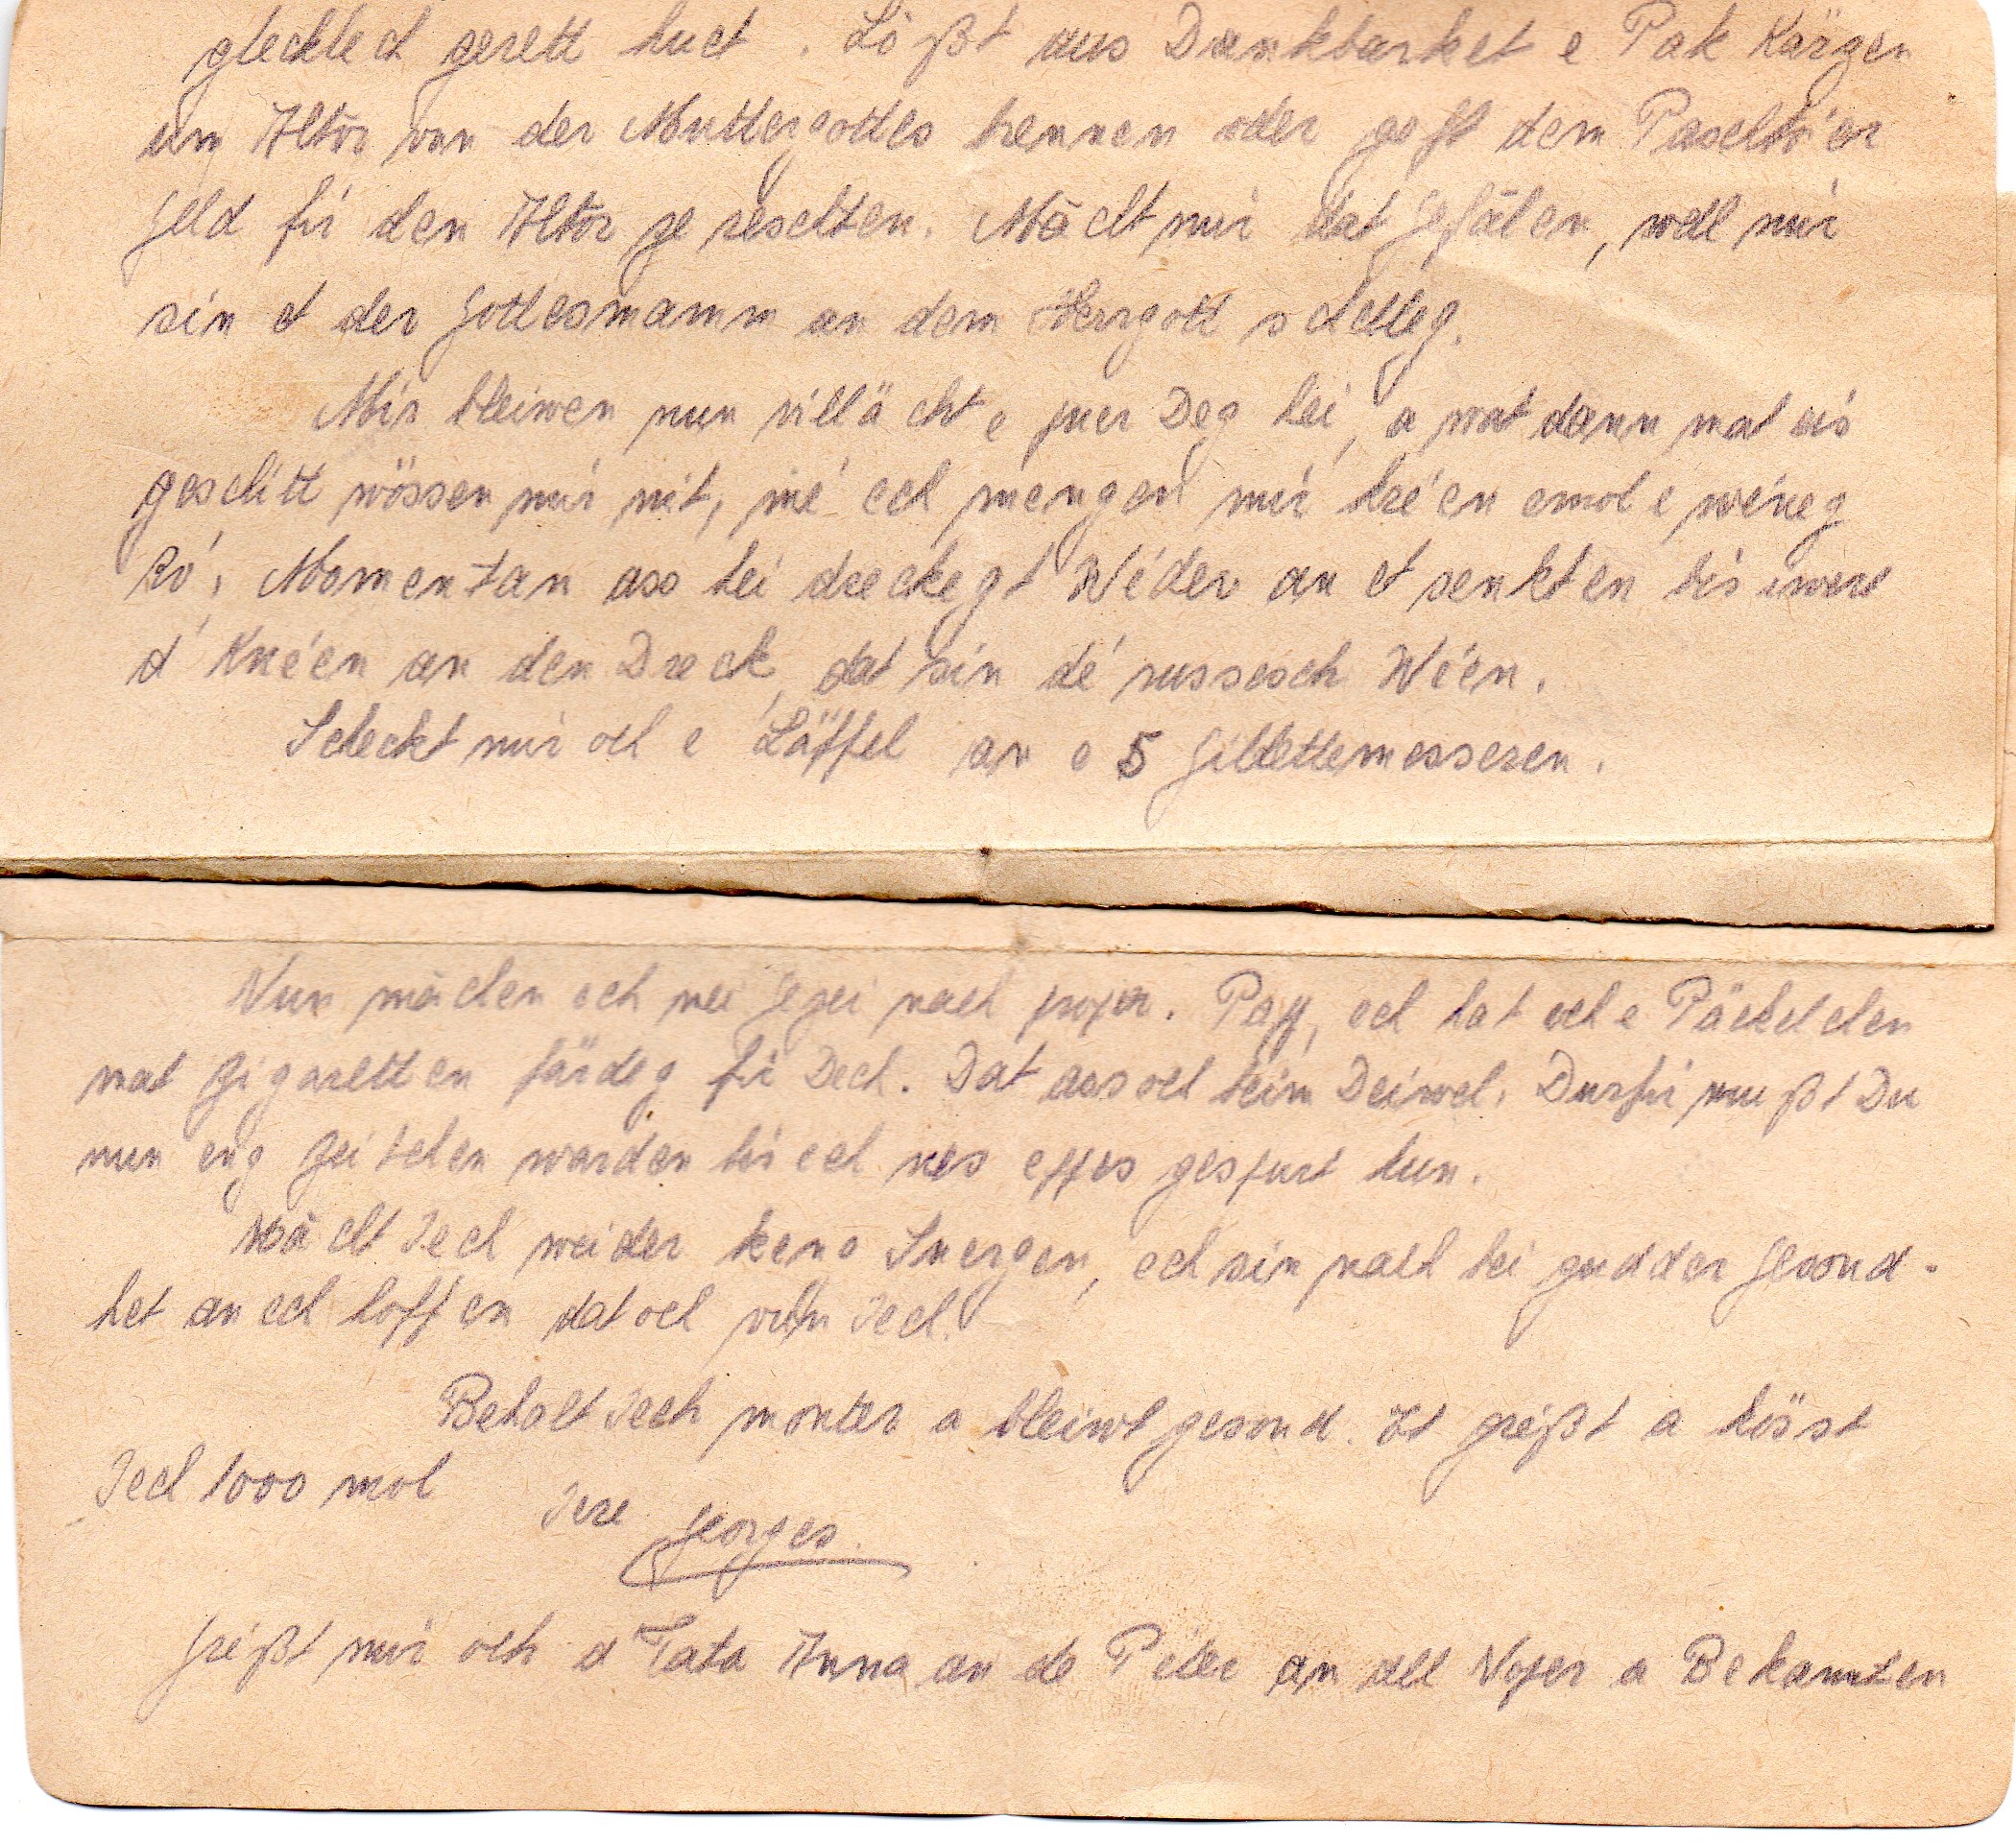 glecklech gerett huet. Lößt aus Dankbarket e Pak Kärzen
um Altor vun der Muttergottes brennen oder geft dem Paschtо́er
Geld fir den Altor ze reschten. Mācht mir dat Gefālen, well mir
sin et der Gottesmamm an dem Herrgott schelleg.
Mir bleiwen nun villächt e puer Deg hei, a wat dann mat eis
geschitt wössen mir nit, mé ech mengen mir kréen emol e wéneg
Ró. Momentan ass hei dreckegt Wéder an et senkt en bis iwert
d'Knéen an den Dreck, dat sin dé russesch Wéen.
Scheckt mir och e Läffel an e 5 Gillettemesseren.
Nun māchen ech mei Gezei nach proper. Papp, ech hat och e Päckelchen
mat Zigaretten färdeg fir Dech. Dat ass och beim Deiwel. Durfir mußt Du
nun eng Zeitchen warden bis ech nes eppes gespurt hun.
Mācht Iech weider keng Suergen, ech sin nach bei gudder Gesond-
het an ech hoffen dat och vun Iech.
Behalt Iech monter a bleiwt gesond. Et gréßt a kösst
Iech 1000 mol Iere Georges.
Gréßt mir och d'Tata Anna an de Peter an all Noper a Bekannten